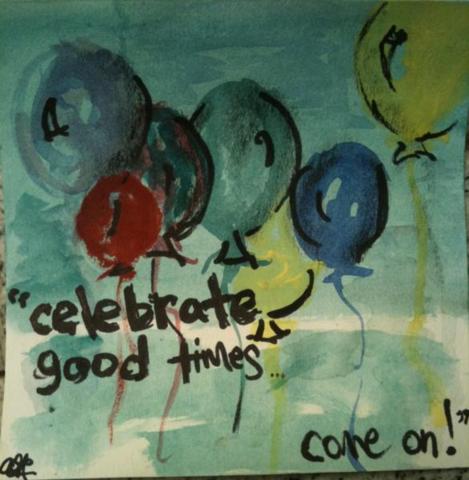 "celebrate
good times...
come on!"